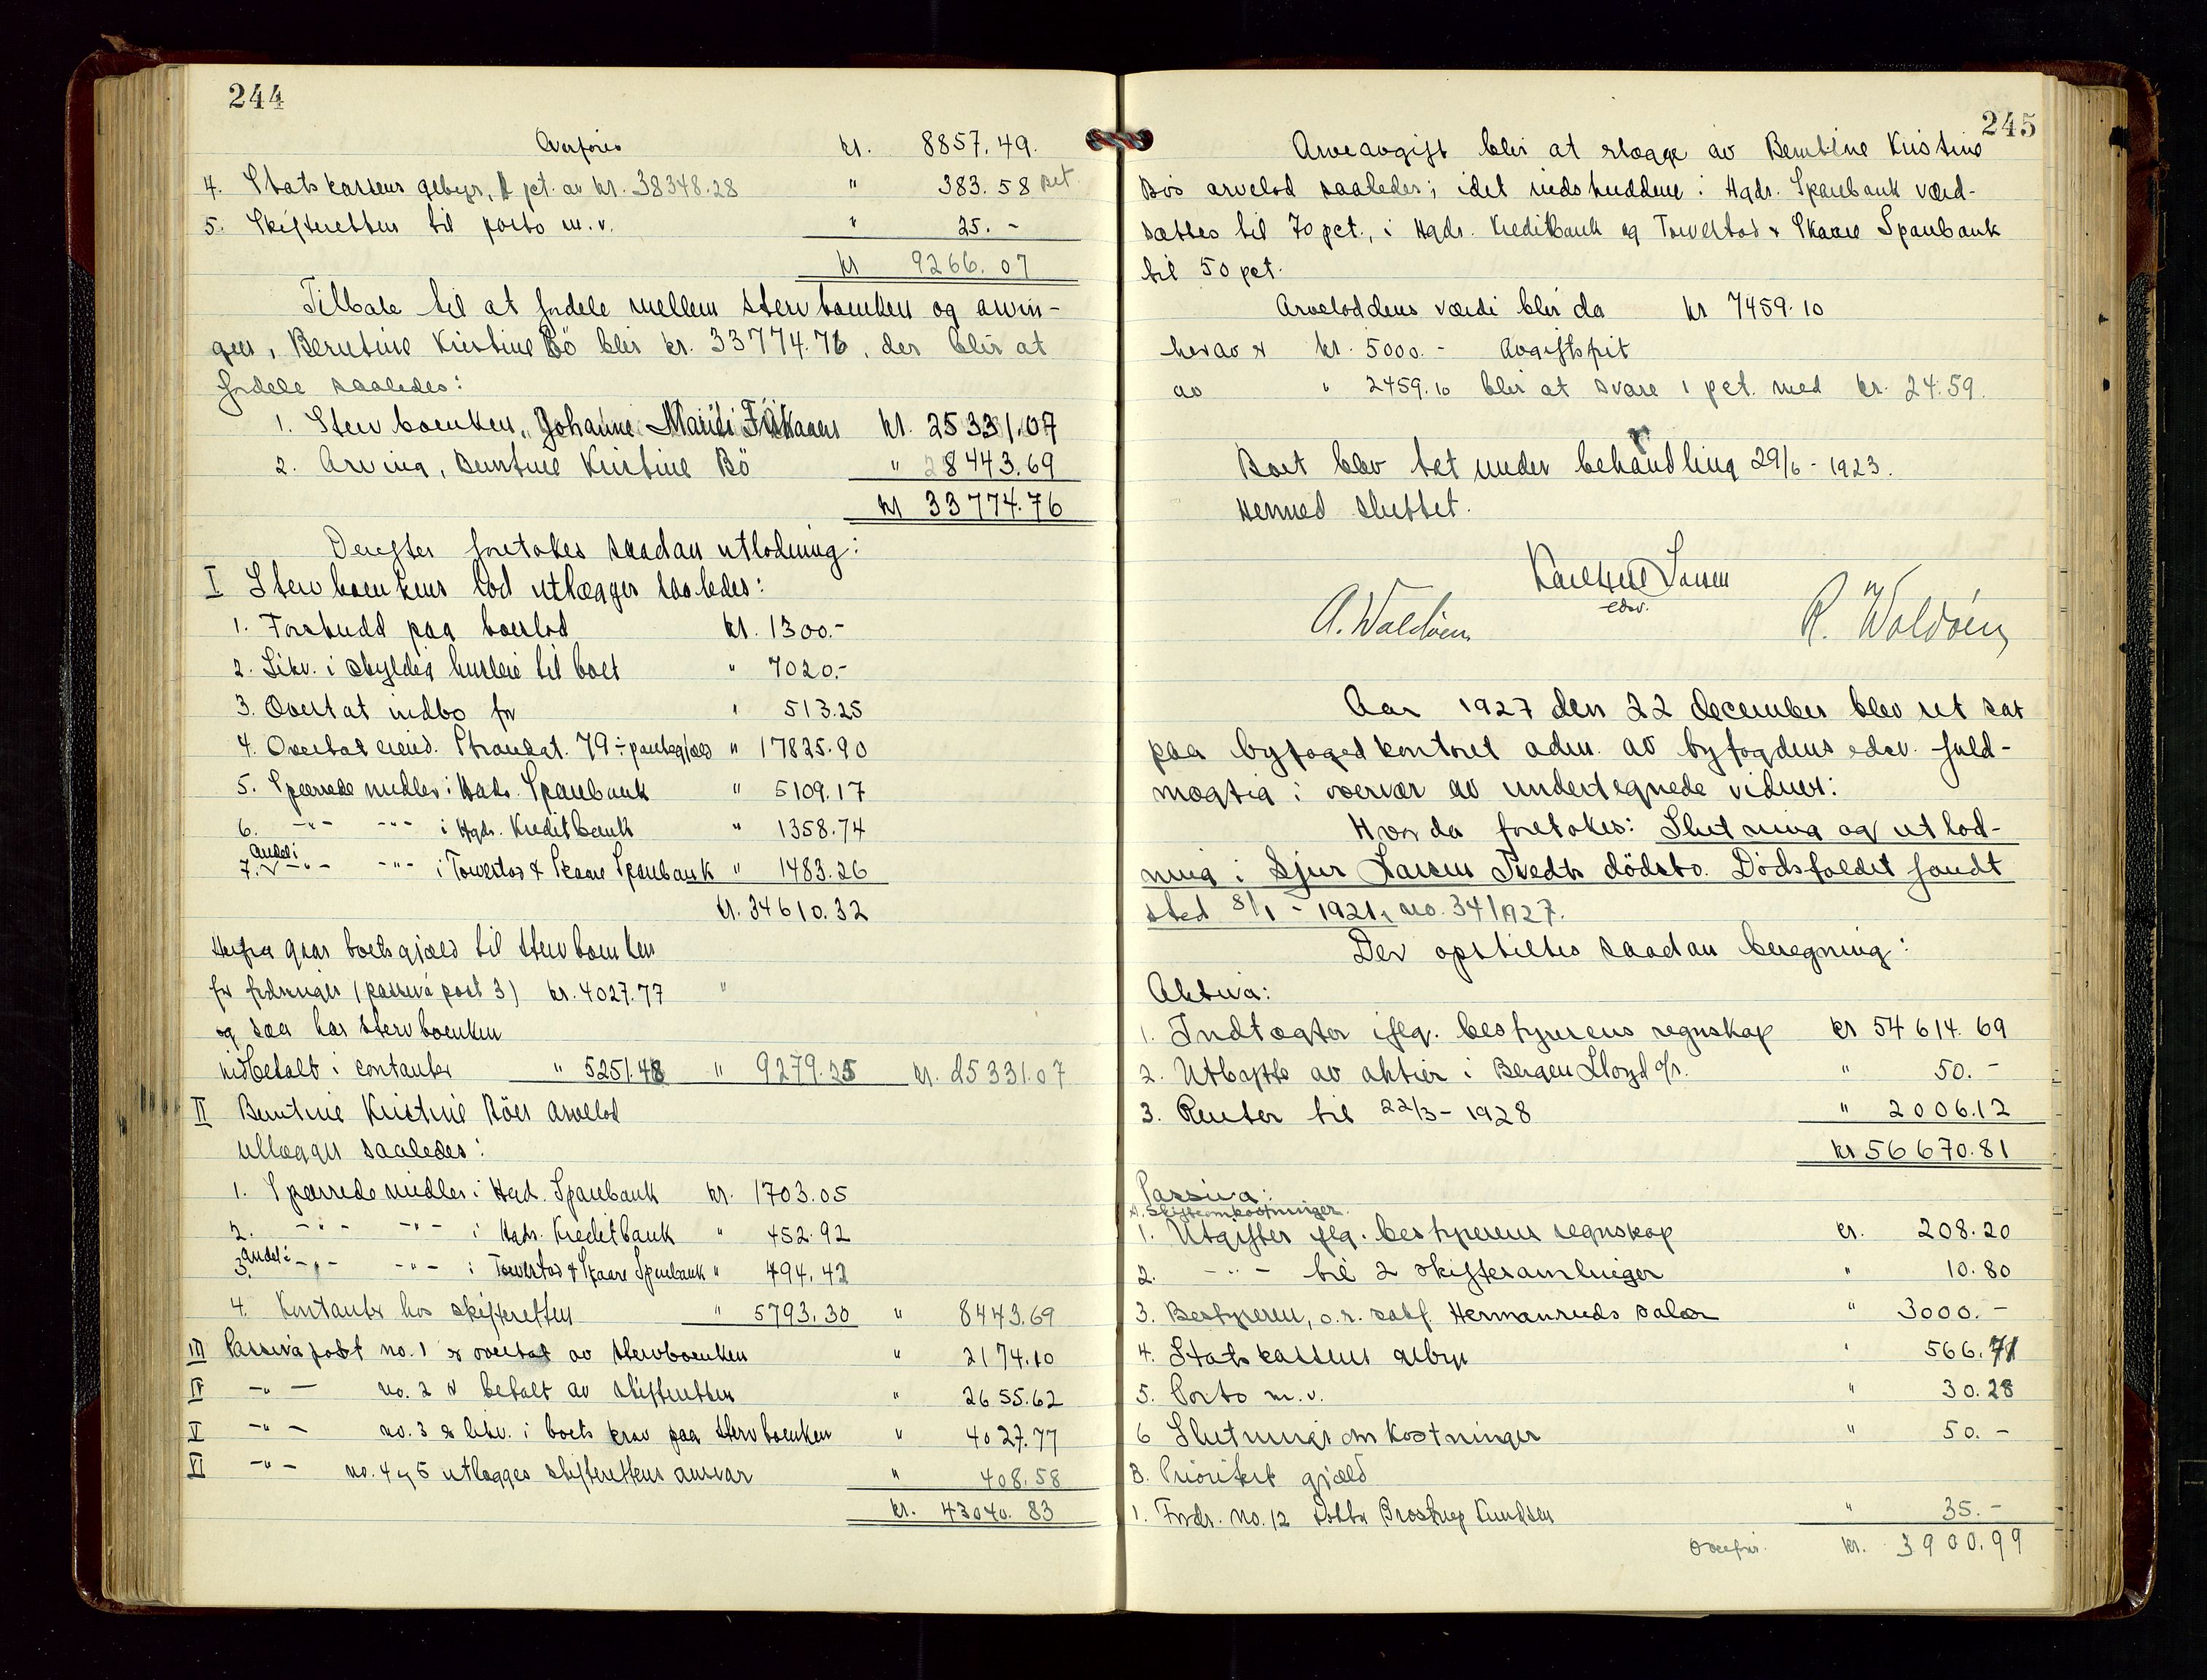 244
Overføres kr. 8857.49.
4. Statskassens gebyr, 1 pct. av kr. 38348.28 " 383.58
5. Skifteretten til porto m.v. " 25.-
kr 9266.07
Tilbake til at fordele mellem stervboenken og arvin-
gen, Berntine Kristine Bö blir kr. 33774.76, der blir at
fordele saaledes:
1. Stervboenken, Johanne kr. 25331.07
2. Arving, Berntine Kristine Bö " 8443.69
kr 33774.76
Derefter foretokes saadan utlodning:
I Stervboenkens lod utlægges saaledes:
1. Forskudd paa boeslod kr. 1300.-
2. Likv. i skyldig husleie til boet " 7020.-
3. Overtat indbo for " 513.25
4. Overtat eiend. Strandgt. 79 ÷ pantegjæld " 17825.90
5. Sperrede midler i Hgds. Sparebank " 5109.17
6. -"- -"- i Hgds. Kreditbank " 1358.74
7. Andel i -"- -"- i Torvestad & Skaare Sparebank " 1483.26
kr. 34610.32
Herfra gaar boets gjæld til stervboenken
for fordringer (passiva post 3) kr. 4027.77 "
og saa har stervboenken
indbetalt i contanter " 5251.48 " 9279.25 kr. 25331.07
II Berntine Kristine Böes arvelod
utlægges saaledes:
1. Sperrede midler i Hgd. Sparebank kr. 1703.05
2. -"- -"- i Hgds. Kreditbank " 452.92
3. Andel i -"- -"- i Torvestad & Skaare Sparebank " 494.42
4. Kontanter hos skifteretten " 5793.30 " 8443.69
III Passiva post no. 1 er overtat av stervboenken " 2174.10
IV -"- no. 2 er betalt av skifteretten " 2655.62
V -"- no. 3 er likv. i boets krav paa stervboenken " 4027.77
VI -"- no. 4 og 5 utlægges skifterettens ansvar " 408.58
kr. 43040.83
245
Arveavgift blir at erlægge av Berntine Kristine
Bös arvelod saaledes; idet indskuddene i Hgds. Sparebank værd-
sættes til 70 pct., i Hgds. Kreditbank og Torvestad & Skaare Sparebank
til 50 pct.
Arveloddens værdi blir da kr 7459.10
herav er kr. 5000.- Avgiftsfrit
av " 2459.10 blir at svare 1 pct. med kr. 24.59.
Boet blev tat under behandling 29/6 - 1923.
Hermed sluttet.
Larsen
edsv.
A. Waldöen R. Waldöen
Aar 1927 den 22 december blev ret sat
paa byfogedkontoret adm. av byfogdens edsv. fuld-
mægtig i overvær av undertegnede vidner:
Hvor da foretokes: Slutning og utlod-
ning i Sjur Larsen Tvedts dödsbo. Dödsfaldet fandt
sted 8/1 - 1921, no. 34/1927.
Der opstilles saadan beregning:
Aktiva:
1. Indtægter iflg. bestyrerens regnskap kr 54614.69
2. Utbytte av aktier i Bergen Lloyd a/s. " 50.-
3. Renter til 22/3 - 1928 " 2006.12
kr 56670.81
Passiva:
A. Skifteomkostninger.
1. Utgifter iflg. bestyrerens regnskap kr. 208.20
2. -"- til 2 skiftesamlinger " 10.80
3. Bestyreren, o.r. sakf. Hermanruds salær " 3000.-
4. Statskassens gebyr " 566.71
5. Porto m.v. " 30.28
6 Slutningsomkostninger " 50.-
B. Prioritert gjæld
1. Fordr. no. 12 Knudsen " 35.-
Overför. kr. 3900.99